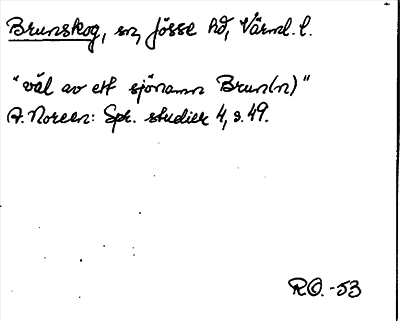 Brunskog, sn, Jösse hd, Värml. l.
"väl av ett sjönamn Brun(n)"
A. Noreen: Spr. studier 4, s. 49.
RO. -53